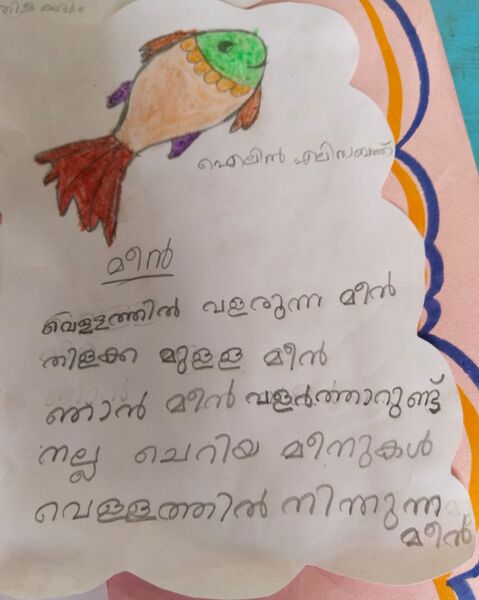 ഐലിൻ എലിസബത്ത്
മീൻ
വെള്ളത്തിൽ വളരുന്ന മീൻ
തിളക്ക മുള്ള മീൻ
ഞാൻ മീൻ വളർത്താറുണ്ട്
നല്ല ചെറിയ മീനുകൾ
വെള്ളത്തിൽ നിന്തുന്ന
മീൻ